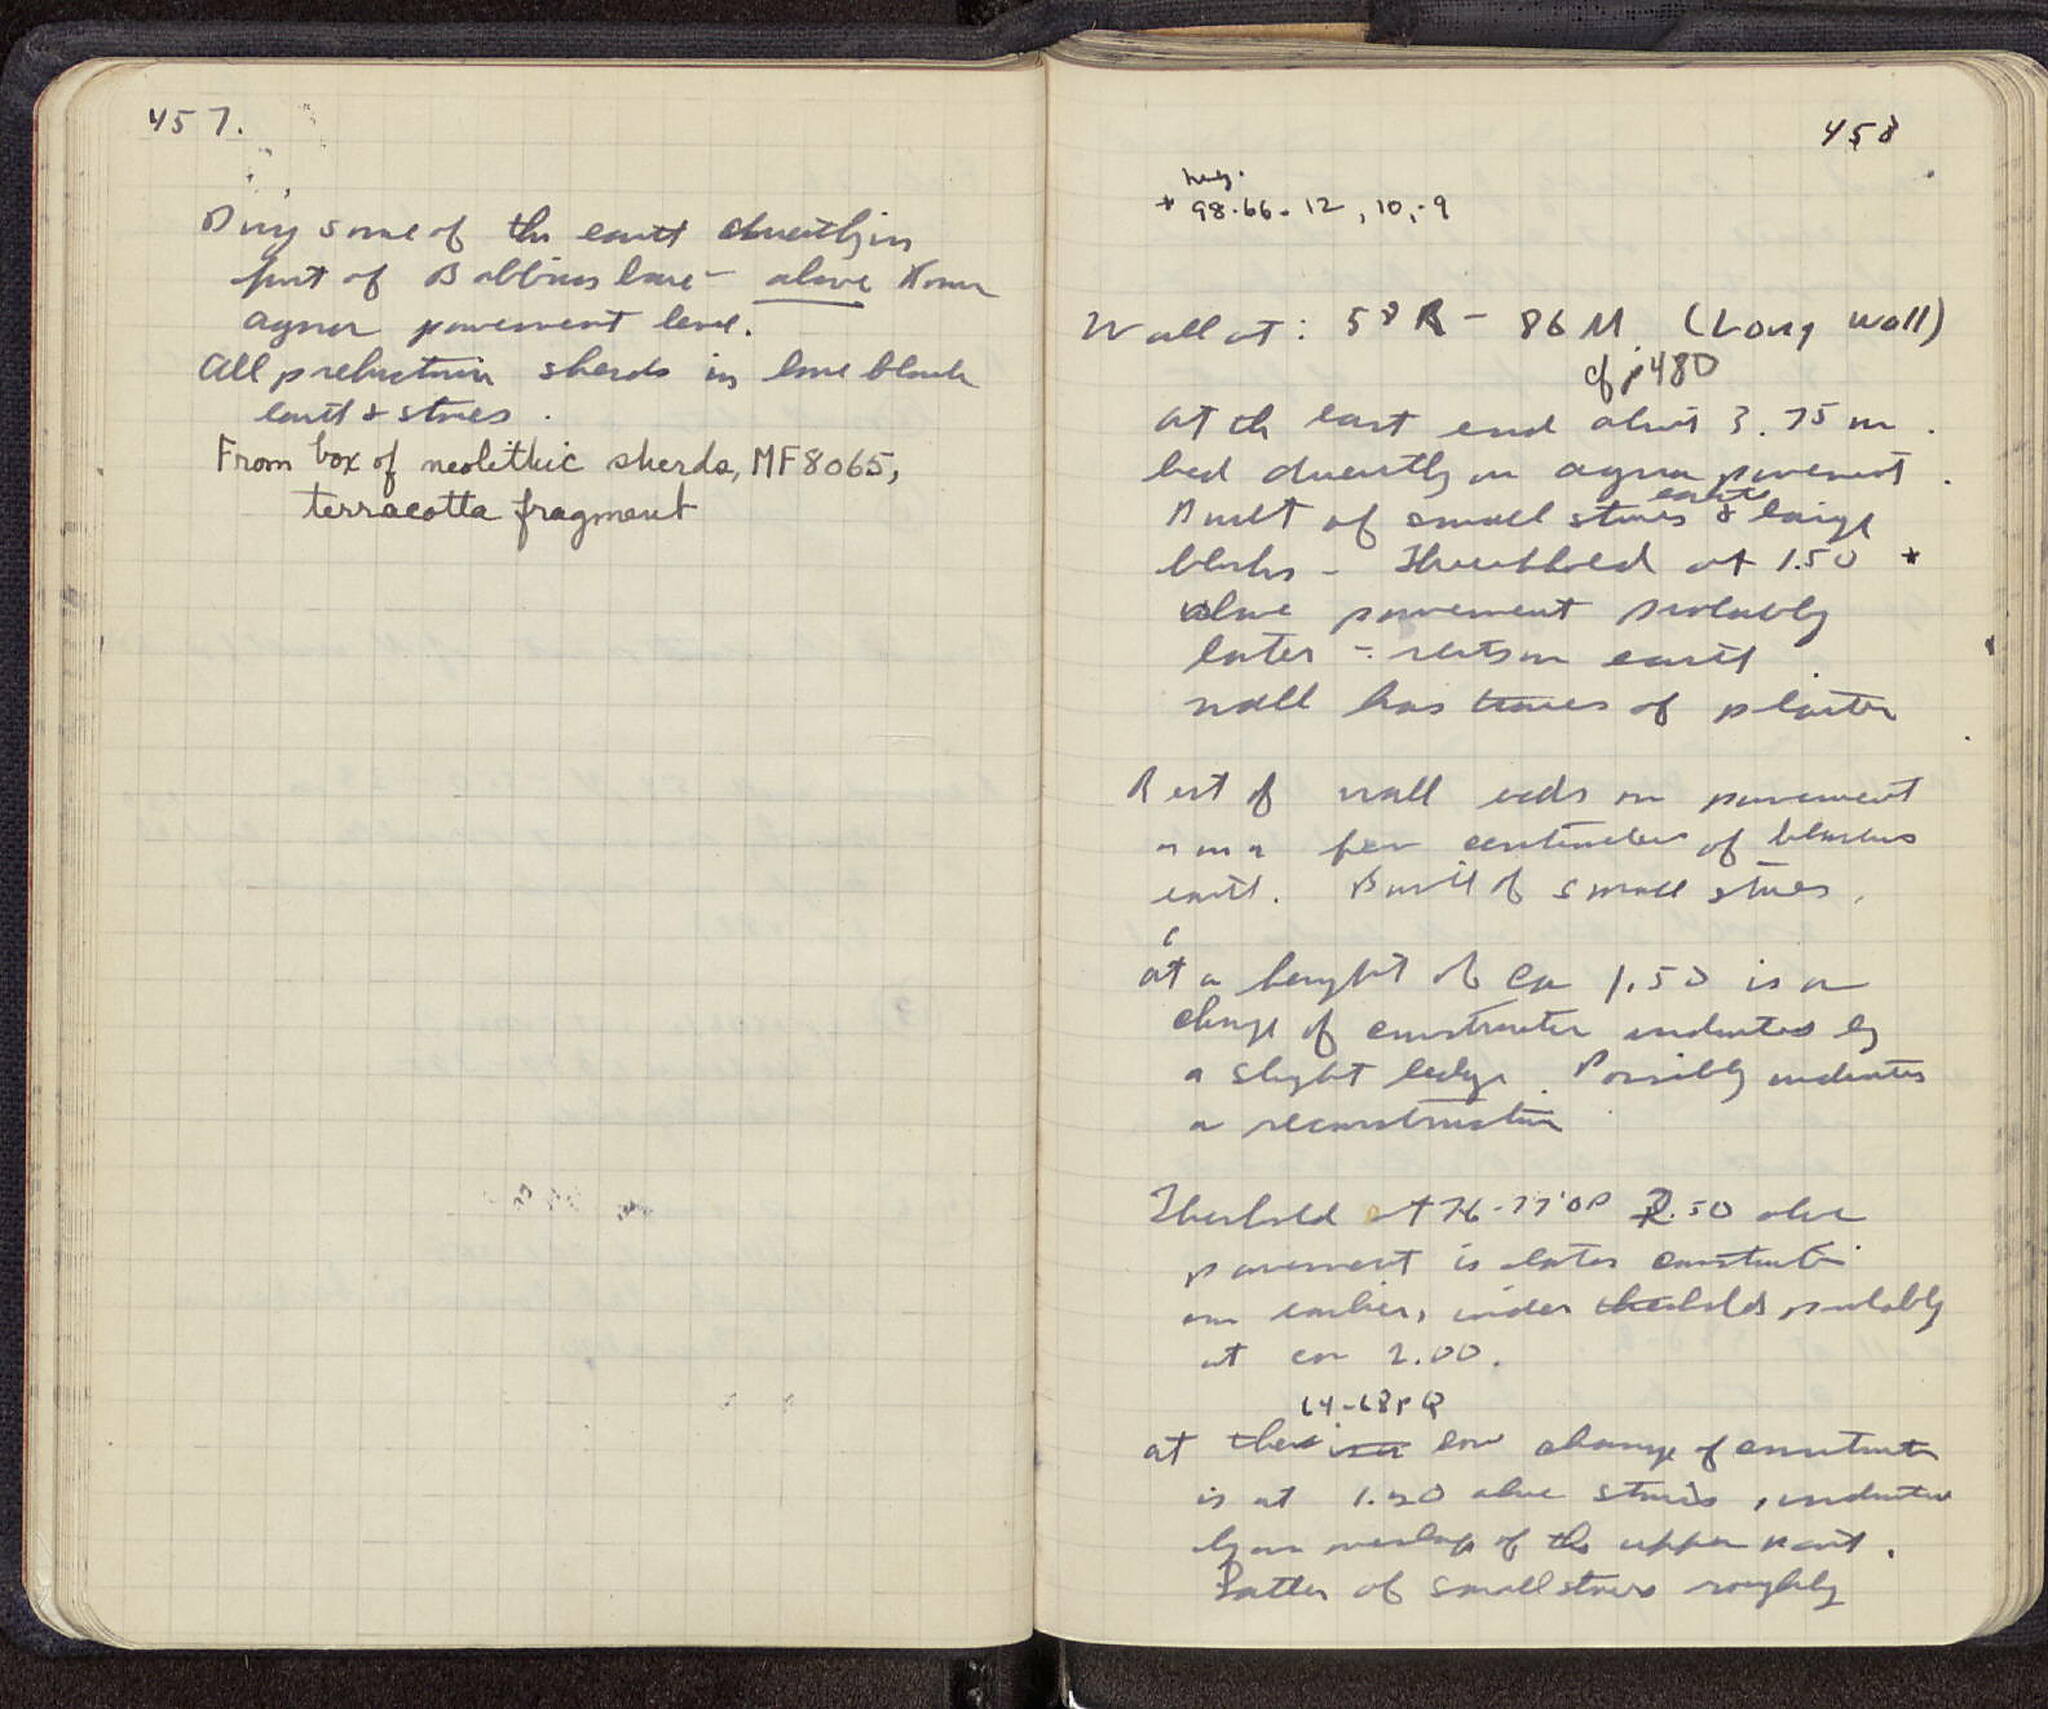 457.
Dug some of the earth directly in
front of Babbius base - above Roman
agora pavement level.
All prehistoric sherds in loose black
earth & stones.
From box of neolithic sherds, MF8065,
terracotta fragment
458
neg.
* 98.66-12, 10, -9
Wall at: 58R - 86M (Long wall)
cf p 480
at the east end about 3.75 m.
bed directly on agora pavement.
Built of small stones earth & large
blocks - Threshold at 1.50 *
above pavement probably
later - rests on earth
wall has traces of plaster
Rest of wall beds on pavement
or on a few centimeters of blackish
earth. Built of small stones.
at a height of ca 1.50 is a
change of construction indicated by
a slight ledge. Possibly indicates
a reconstruction
Threshold at 76-77 OP 2.50 above
pavement is later construction
an earlier, wider threshold, probably
at ca 2.00.
64-68 P Q
at there is a low change of construction
is at above stones, indicated
by an overlap of the upper part.
Latter of small stones roughly